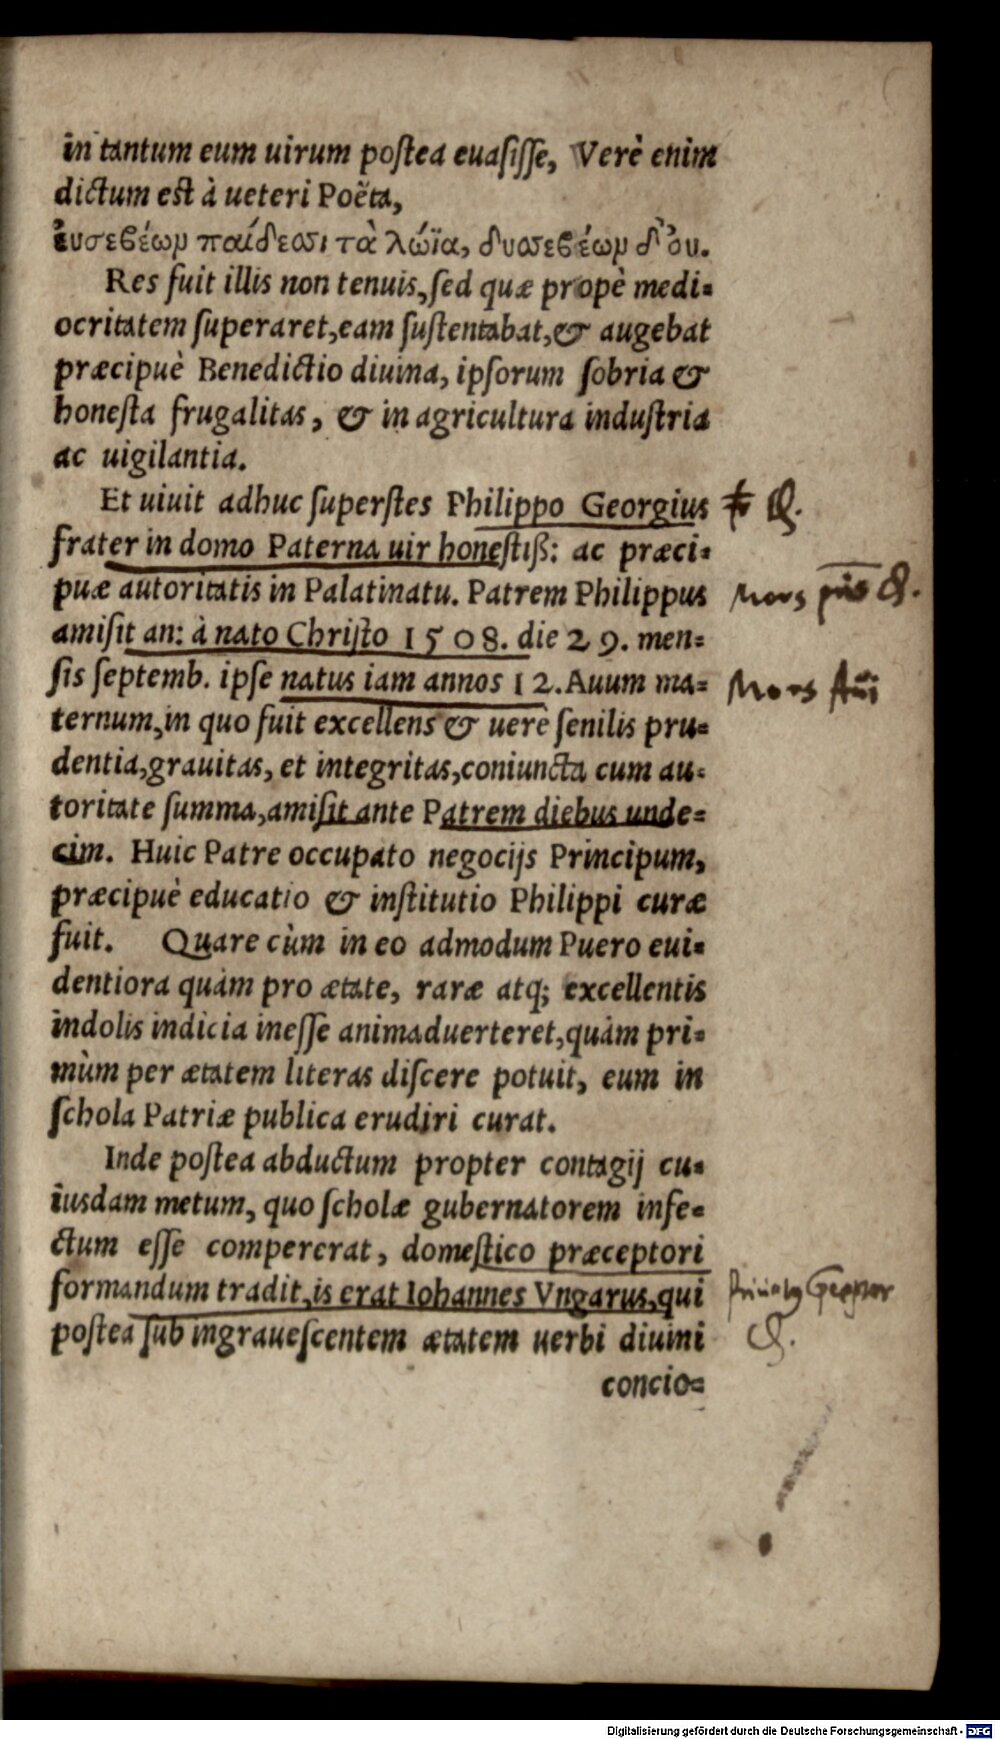 in tantum eum uirum poſtea euaſiſſe, Verè enim
dictum est à ueteri Poëta,
ἐυσεβέων παίδεσσι τὰ λώϊα, δυσσεβέων δ' ὀυ.
Res fuit illis non tenuis, ſed quæ propè medi-
ocritatem ſuperaret, eam ſuſtentabat, & augebat
præcipuè Benedictio diuina, ipſorum ſobria &
honeſta frugalitas, & in agricultura induſtria
ac uigilantia.
Et uiuit adhuc ſuperſtes Philippo Georgius
frater in domo Paterna uir honeſtiß: ac præci-
puæ autoritatis in Palatinatu. Patrem Philippus
amiſit an: à nato Chriſto 1508. die 29. men-
ſis ſeptemb. ipſe natus iam annos 12. Auum ma-
ternum, in quo fuit excellens & uerè ſenilis pru-
dentia, grauitas, et integritas, coniuncta cum au-
toritate ſumma, amiſit ante Patrem diebus unde-
cim. Huic Patre occupato negocijs Principum,
præcipuè educatio & inſtitutio Philippi curæ
fuit. Quare cùm in eo admodum Puero eui-
dentiora quàm pro ætate, raræ atq; excellentis
indolis indicia ineſſe animaduerteret, quàm pri-
mùm per ætatem literas diſcere potuit, eum in
ſchola Patriæ publica erudiri curat.
Inde poſtea abductum propter contagij cu-
iusdam metum, quo ſcholæ gubernatorem infe-
ctum eſſe compererat, domeſtico præceptori
formandum tradit, is erat Iohannes Vngarus, qui
poſtea ſub ingraueſcentem ætatem uerbi diuini
concio-
Mors
Mors Aui
Digitalisierung gefördert durch die Deutsche Forschungsgemeinschaft - DFG